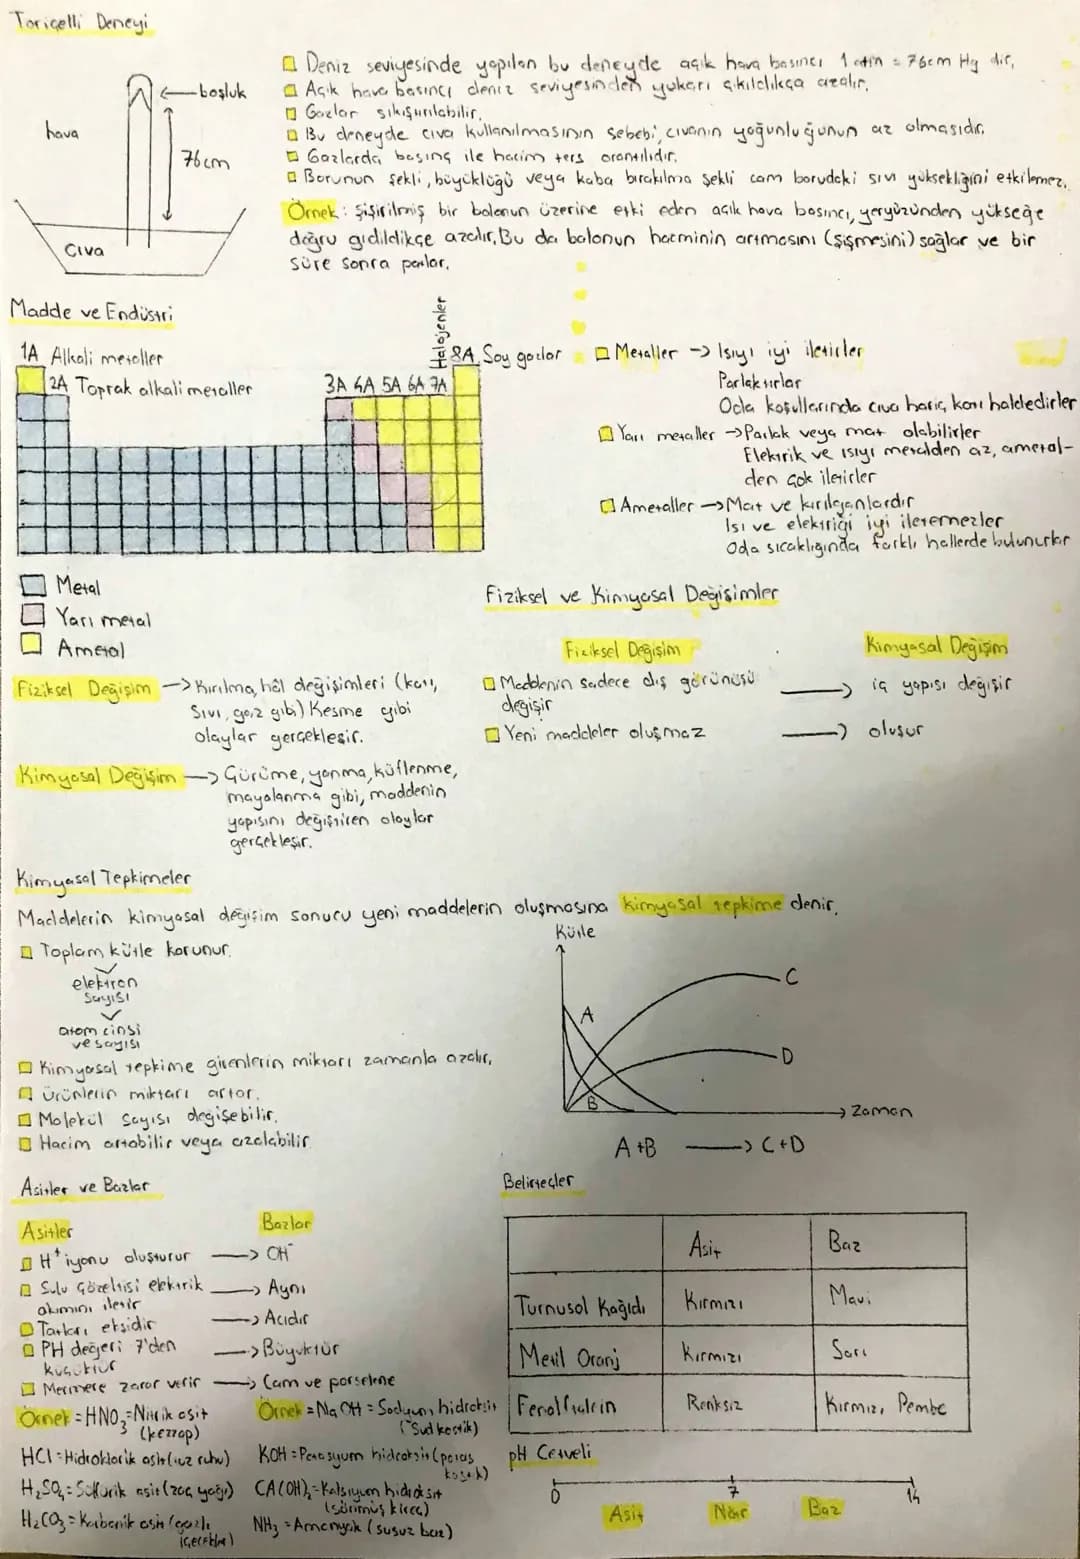 Toriçelli Deneyi
boşluk
hava
76cm
Cıva
Deniz seviyesinde yapılan bu deneyde açık hava basıncı 1 atm = 76cm Hg dir,
Açık hava basıncı deniz seviyesinden yukarı çıkıldıkça azalır,
Gazlar sıkıştırılabilir,
Bu deneyde cıva kullanılmasının sebebi, cıvanın yoğunluğunun az olmasıdır,
Gazlarda basınç ile hacim ters orantılıdır,
Borunun şekli, büyüklüğü veya kaba bırakılma şekli cam borudaki sıvı yüksekliğini etkilemez,
Örnek: Şişirilmiş bir balonun üzerine etki eden açık hava basıncı, yeryüzünden yükseğe
doğru gidildikçe azalır, Bu da balonun hacminin artmasını (şişmesini) sağlar ve bir
süre sonra patlar,
Madde ve Endüstri
1A Alkali metaller
2A Toprak alkali metaller
3A 4A 5A 6A 7A
Halojenler
8A Soy gazlar
Metal
Yarı metal
Ametal
Metaller -> Isıyı iyi iletirler
Parlaktırlar
Oda koşullarında cıva hariç katı haldedirler
Yarı metaller -> Parlak veya mat olabilirler
Elektrik ve ısıyı metalden az, ametal-
den çok iletirler
Ametaller -> Mat ve kırılganlardır
Isı ve elektriği iyi iletemezler
Oda sıcaklığında farklı hallerde bulunurlar
Fiziksel Değişim -> Kırılma, hâl değişimleri (katı,
sıvı, gaz gibi) Kesme gibi
olaylar gerçekleşir.
Kimyasal Değişim -> Çürüme, yanma, küflenme,
mayalanma gibi, maddenin
yapısını değiştiren olaylar
gerçekleşir.
Fiziksel ve Kimyasal Değişimler
Fiziksel Değişim Kimyasal Değişim
Maddenin sadece dış görünüşü -> iç yapısı değişir
değişir
Yeni maddeler oluşmaz -> oluşur
Kimyasal Tepkimeler
Maddelerin kimyasal değişim sonucu yeni maddelerin oluşmasına kimyasal tepkime denir,
Toplam kütle korunur.
elektron
sayısı
atom cinsi
ve sayısı
Kimyasal tepkime girenlerin miktarı zamanla azalır,
Ürünlerin miktarı artar.
Molekül sayısı değişebilir,
Hacim artabilir veya azalabilir
Kütle
C
A
D
B
Zaman
A+B -> C+D
Asitler ve Bazlar
Asitler Bazlar
H⁺ iyonu oluşturur -> OH⁻
Sulu çözeltisi elektrik -> Aynı
akımını iletir
Tatları ekşidir -> Acıdır
PH değeri 7'den -> Büyüktür
küçüktür
Mermere zarar verir -> Cam ve porselene
Örnek = HNO₃ = Nitrik asit
(kezzap)
HCl = Hidroklorik asit (tuz ruhu)
H₂SO₄ = Sülfürik asit (zaç yağı)
H₂CO₃ = Karbonik asit (gazlı
içecekler)
Örnek = NaOH = Sodyum hidroksit
(Sud kostik)
KOH = Potasyum hidroksit (potas
kostik)
CA(OH)₂ = Kalsiyum hidroksit
(sönmüş kireç)
NH₃ = Amonyak (susuz baz)
Belirteçler
Asit Baz
Turnusol Kağıdı Kırmızı Mavi
Metil Oranj Kırmızı Sarı
Fenolftalein Renksiz Kırmızı, Pembe
pH Cetveli
0 7 14
Asit Nötr Baz